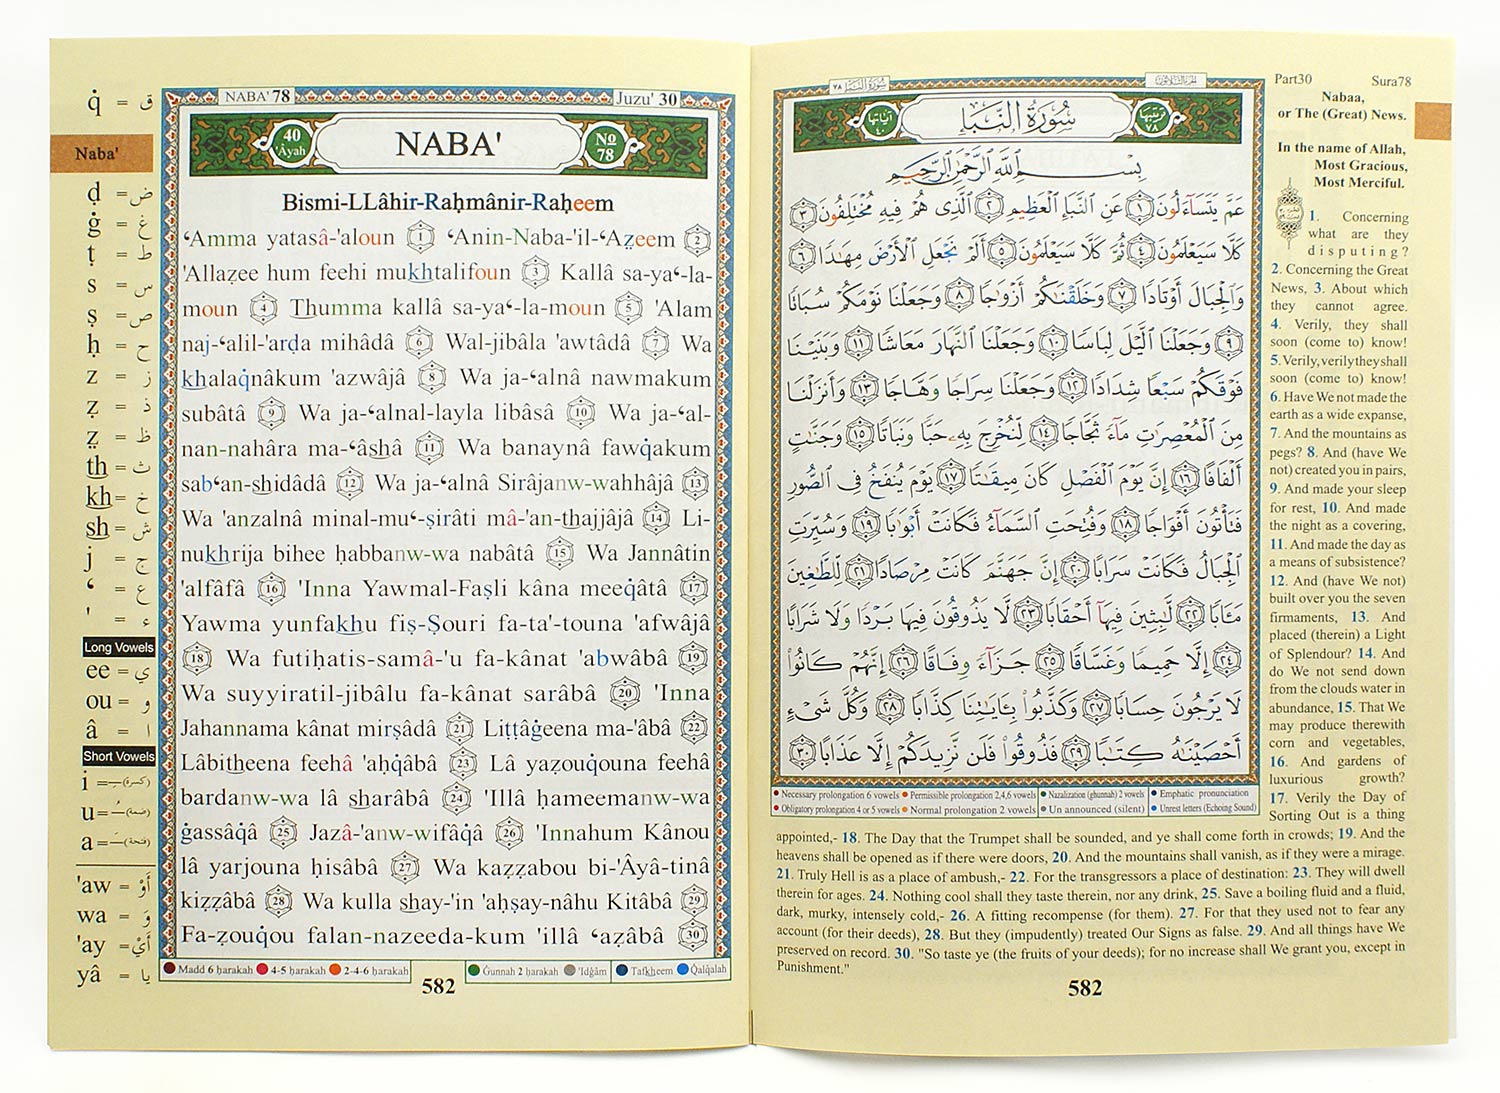 q̇ = ق
Naba'
ḍ = ض
ġ = غ
ṭ = ط
s = س
ṣ = ص
ḥ = ح
z = ز
ẓ = ذ
ẓ̈ = ظ
th = ث
kh = خ
sh = ش
j = ج
‘ = ع
' = ء
Long Vowels
ee = ي
ou = و
â = ا
Short Vowels
i = ـِ (كسرة)
u = ـُ (ضمة)
a = ـَ (فتحة)
'aw = أَوْ
wa = وَ
'ay = أَيْ
yâ = يا
NABA' 78
Juzu' 30
40 'Âyah
NABA'
No 78
Bismi-LLâhir-Raḥmânir-Raḥeem
‘Amma yatasâ-'aloun 1 ‘Anin-Naba-'il-‘Aẓeem 2
'Allaẓee hum feehi mukhtalifoun 3 Kallâ sa-ya‘-la-
moun 4 Thumma kallâ sa-ya‘-la-moun 5 'Alam
naj-‘alil-'arḍa mihâdâ 6 Wal-jibâla 'awtâdâ 7 Wa
khalaq̇nâkum 'azwâjâ 8 Wa ja-‘alnâ nawmakum
subâtâ 9 Wa ja-‘alnal-layla libâsâ 10 Wa ja-‘al-
nan-nahâra ma-‘âshâ 11 Wa banaynâ fawq̇akum
sab‘an-shidâdâ 12 Wa ja-‘alnâ Sirâjanw-wahhâjâ 13
Wa 'anzalnâ minal-mu‘-ṣirâti mâ-'an-thajjâjâ 14 Li-
nukhrija bihee ḥabbanw-wa nabâtâ 15 Wa Jannâtin
'alfâfâ 16 'Inna Yawmal-Faṣli kâna meeq̇âtâ 17
Yawma yunfakhu fiṣ-Ṣouri fa-ta'-touna 'afwâjâ
18 Wa futiḥatis-samâ-'u fa-kânat 'abwâbâ 19
Wa suyyiratil-jibâlu fa-kânat sarâbâ 20 'Inna
Jahannama kânat mirṣâdâ 21 Liṭṭâġeena ma-'âbâ 22
Lâbitheena feehâ 'aḥq̇âbâ 23 Lâ yaẓouq̇ouna feehâ
bardanw-wa lâ sharâbâ 24 'Illâ ḥameemanw-wa
ġassâq̇â 25 Jazâ-'anw-wifâq̇â 26 'Innahum Kânou
lâ yarjouna ḥisâbâ 27 Wa kaẓẓabou bi-'Âyâ-tinâ
kiẓẓâbâ 28 Wa kulla shay-'in 'aḥṣay-nâhu Kitâbâ 29
Fa-ẓouq̇ou falan-nazeeda-kum 'illâ ‘aẓâbâ 30
Madd 6 ḥarakah 4-5 ḥarakah 2-4-6 ḥarakah Ġunnah 2 ḥarakah 'Idġâm Tafkheem Q̇alq̇alah
582
سُورَةُ النَّبَإِ ٧٨
الجزء الثلاثون
ترتيبها ٧٨
سُورَةُ النَّبَإِ
آياتها ٤٠
بِسْمِ اللَّهِ الرَّحْمَٰنِ الرَّحِيمِ
عَمَّ يَتَسَآءَلُونَ ١ عَنِ ٱلنَّبَإِ ٱلْعَظِيمِ ٢ ٱلَّذِى هُمْ فِيهِ مُخْتَلِفُونَ ٣
كَلَّا سَيَعْلَمُونَ ٤ ثُمَّ كَلَّا سَيَعْلَمُونَ ٥ أَلَمْ نَجْعَلِ ٱلْأَرْضَ مِهَٰدًا ٦
وَٱلْجِبَالَ أَوْتَادًا ٧ وَخَلَقْنَٰكُمْ أَزْوَٰجًا ٨ وَجَعَلْنَا نَوْمَكُمْ سُبَاتًا
٩ وَجَعَلْنَا ٱلَّيْلَ لِبَاسًا ١٠ وَجَعَلْنَا ٱلنَّهَارَ مَعَاشًا ١١ وَبَنَيْنَا
فَوْقَكُمْ سَبْعًا شِدَادًا ١٢ وَجَعَلْنَا سِرَاجًا وَهَّاجًا ١٣ وَأَنزَلْنَا
مِنَ ٱلْمُعْصِرَٰتِ مَآءً ثَجَّاجًا ١٤ لِّنُخْرِجَ بِهِۦ حَبًّا وَنَبَاتًا ١٥ وَجَنَّٰتٍ
أَلْفَافًا ١٦ إِنَّ يَوْمَ ٱلْفَصْلِ كَانَ مِيقَٰتًا ١٧ يَوْمَ يُنفَخُ فِى ٱلصُّورِ
فَتَأْتُونَ أَفْوَاجًا ١٨ وَفُتِحَتِ ٱلسَّمَآءُ فَكَانَتْ أَبْوَٰبًا ١٩ وَسُيِّرَتِ
ٱلْجِبَالُ فَكَانَتْ سَرَابًا ٢٠ إِنَّ جَهَنَّمَ كَانَتْ مِرْصَادًا ٢١ لِّلطَّٰغِينَ
مَـَٔابًا ٢٢ لَّٰبِثِينَ فِيهَآ أَحْقَابًا ٢٣ لَّا يَذُوقُونَ فِيهَا بَرْدًا وَلَا شَرَابًا
٢٤ إِلَّا حَمِيمًا وَغَسَّاقًا ٢٥ جَزَآءً وِفَاقًا ٢٦ إِنَّهُمْ كَانُوا۟
لَا يَرْجُونَ حِسَابًا ٢٧ وَكَذَّبُوا۟ بِـَٔايَٰتِنَا كِذَّابًا ٢٨ وَكُلَّ شَىْءٍ
أَحْصَيْنَٰهُ كِتَٰبًا ٢٩ فَذُوقُوا۟ فَلَن نَّزِيدَكُمْ إِلَّا عَذَابًا ٣٠
Necessary prolongation 6 vowels Permissible prolongation 2,4,6 vowels Nazalization (ghunnah) 2 vowels Emphatic pronunciation
Obligatory prolongation 4 or 5 vowels Normal prolongation 2 vowels Un announced (silent) Unrest letters (Echoing Sound)
Part30 Sura78
Nabaa,
or The (Great) News.
In the name of Allah,
Most Gracious,
Most Merciful.
1. Concerning
what are they
disputing?
2. Concerning the Great
News, 3. About which
they cannot agree.
4. Verily, they shall
soon (come to) know!
5. Verily, verily they shall
soon (come to) know!
6. Have We not made the
earth as a wide expanse,
7. And the mountains as
pegs? 8. And (have We
not) created you in pairs,
9. And made your sleep
for rest, 10. And made
the night as a covering,
11. And made the day as
a means of subsistence?
12. And (have We not)
built over you the seven
firmaments, 13. And
placed (therein) a Light
of Splendour? 14. And
do We not send down
from the clouds water in
abundance, 15. That We
may produce therewith
corn and vegetables,
16. And gardens of
luxurious growth?
17. Verily the Day of
Sorting Out is a thing
appointed,- 18. The Day that the Trumpet shall be sounded, and ye shall come forth in crowds; 19. And the
heavens shall be opened as if there were doors, 20. And the mountains shall vanish, as if they were a mirage.
21. Truly Hell is as a place of ambush,- 22. For the transgressors a place of destination: 23. They will dwell
therein for ages. 24. Nothing cool shall they taste therein, nor any drink, 25. Save a boiling fluid and a fluid,
dark, murky, intensely cold,- 26. A fitting recompense (for them). 27. For that they used not to fear any
account (for their deeds), 28. But they (impudently) treated Our Signs as false. 29. And all things have We
preserved on record. 30. "So taste ye (the fruits of your deeds); for no increase shall We grant you, except in
Punishment."
582